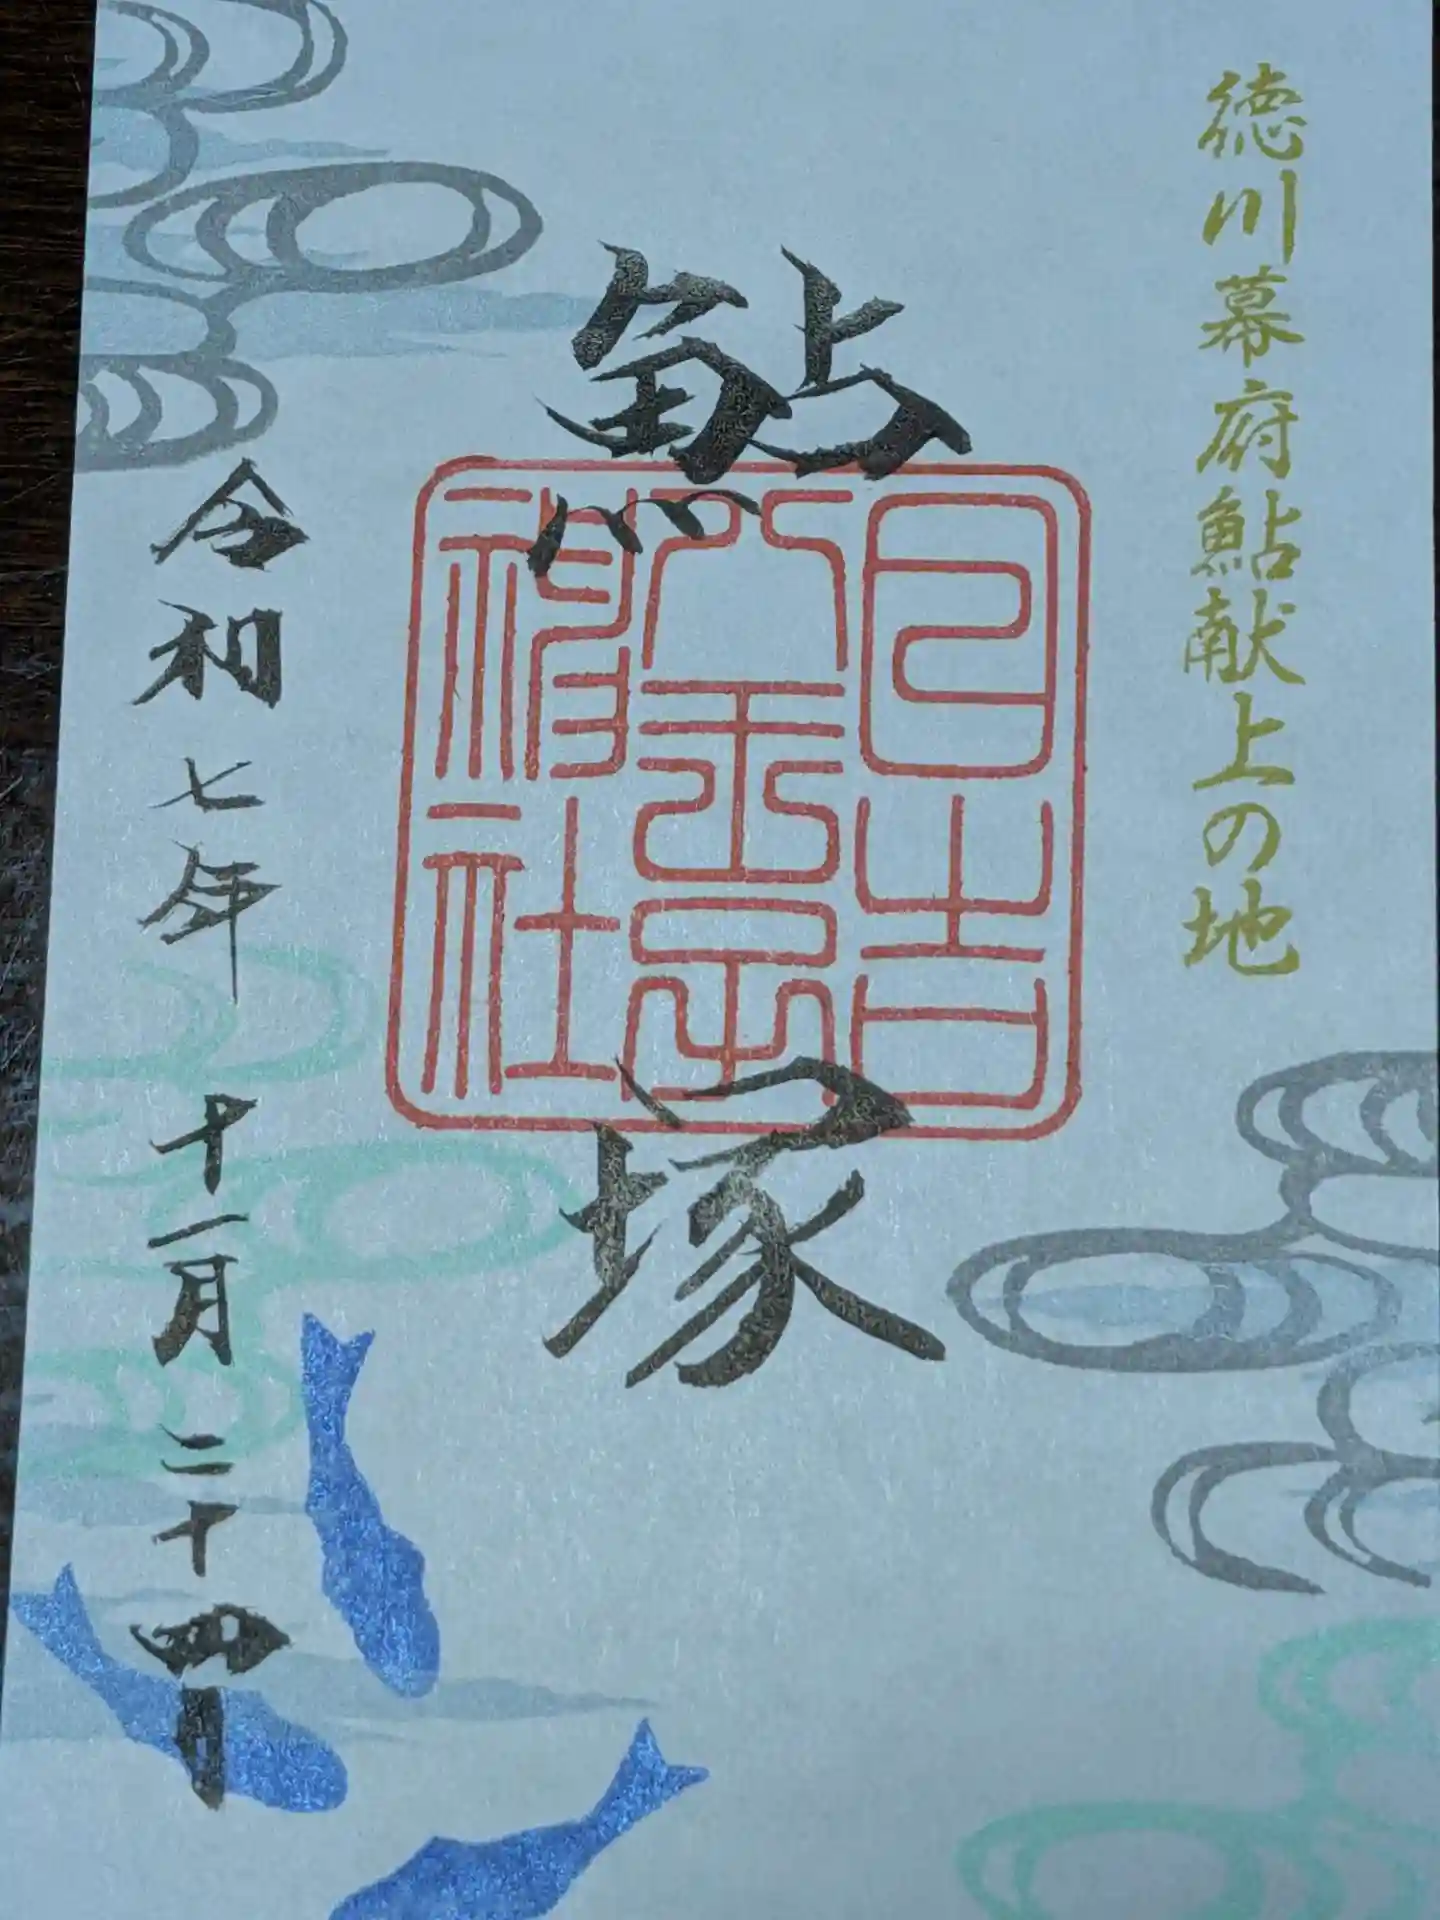 徳川幕府鮎献上の地
鮎塚
日吉
八王子
神社
令和七年十一月二十四日